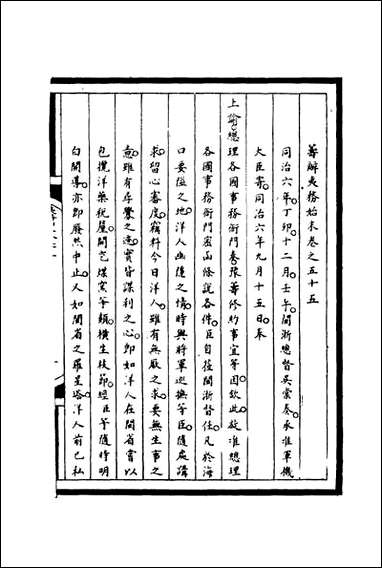 籌辦夷務始末卷之五十五
同治六年丁卯十二月壬午閩浙總督吳棠奏承准軍機
大臣寄同治六年九月十五日奉
上諭總理各國事務衙門奏預籌修約事宜等因欽此茲准總理
各國事務衙門密函條說各件臣自蒞閩浙督任凡於海
口要隘之地洋人幽隱之情時與將軍巡撫等臣隨處講
求留心審度竊料今日洋人雖有無厭之求要無生事之
意雖有尋釁之達實皆謀利之心即如洋人在閩省嘗以
包攬洋藥稅屋間乞煤窯等類橫生枝節經臣等隨時明
白開導亦即廢然中止又如閩省之羅星塔洋人前已私